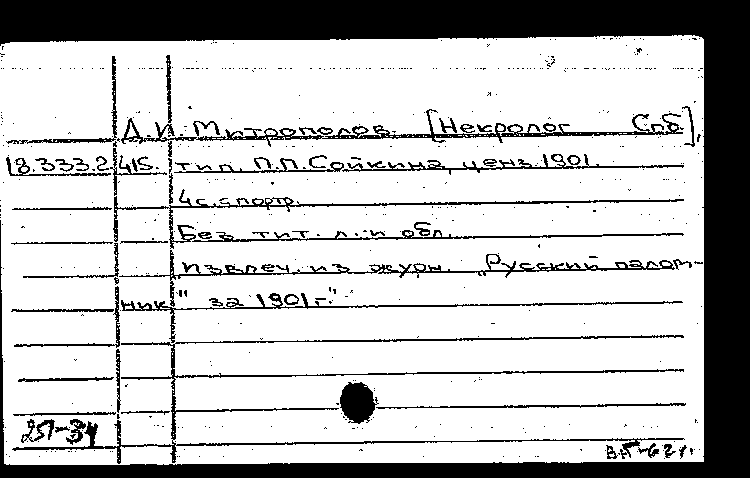 Д.И. Митрополов. [Некролог Спб],
18.333.2.415. тип. П.П.Сойкина, ценз.1901.
4с.с портр.
Без тит. л. и обл.
Извлеч. из журн. „Русский палом-
ник" за 1901г."
251-34